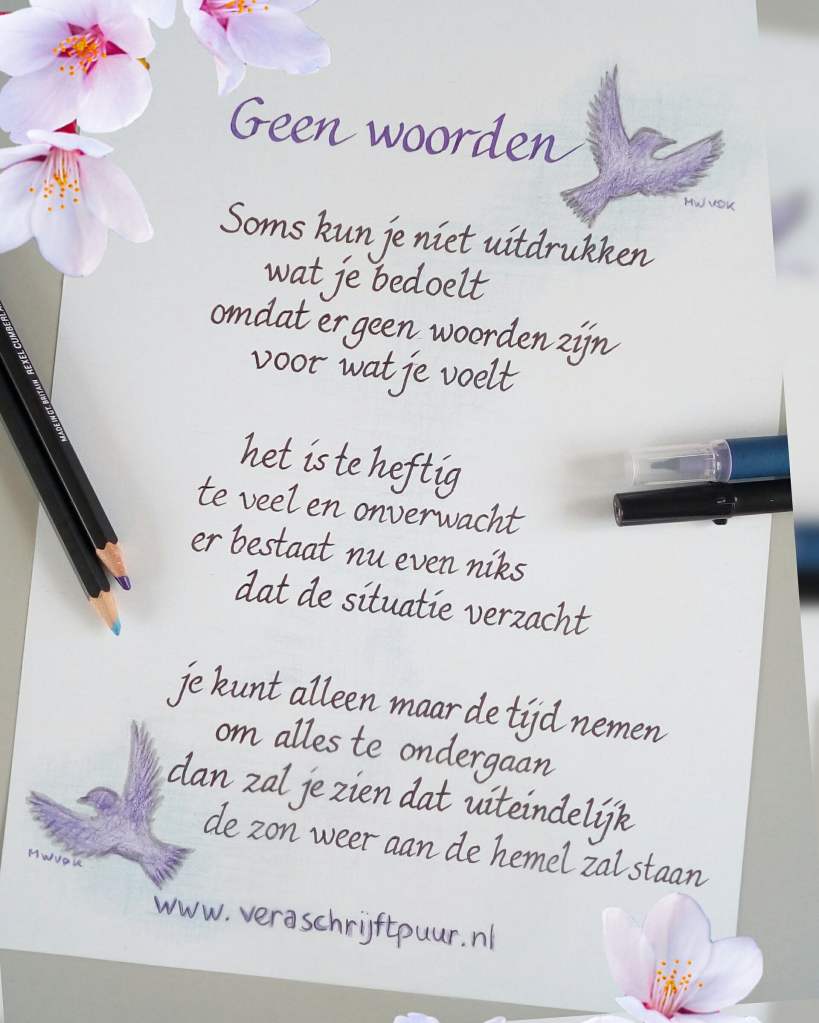 Geen woorden
MWVDK
Soms kun je niet uitdrukken
wat je bedoelt
omdat er geen woorden zijn
voor wat je voelt
het is te heftig
te veel en onverwacht
er bestaat nu even niks
dat de situatie verzacht
je kunt alleen maar de tijd nemen
om alles te ondergaan
dan zal je zien dat uiteindelijk
de zon weer aan de hemel zal staan
MWVDK
www.veraschrijftpuur.nl
MADE IN GT BRITAIN REXEL CUMBERLA